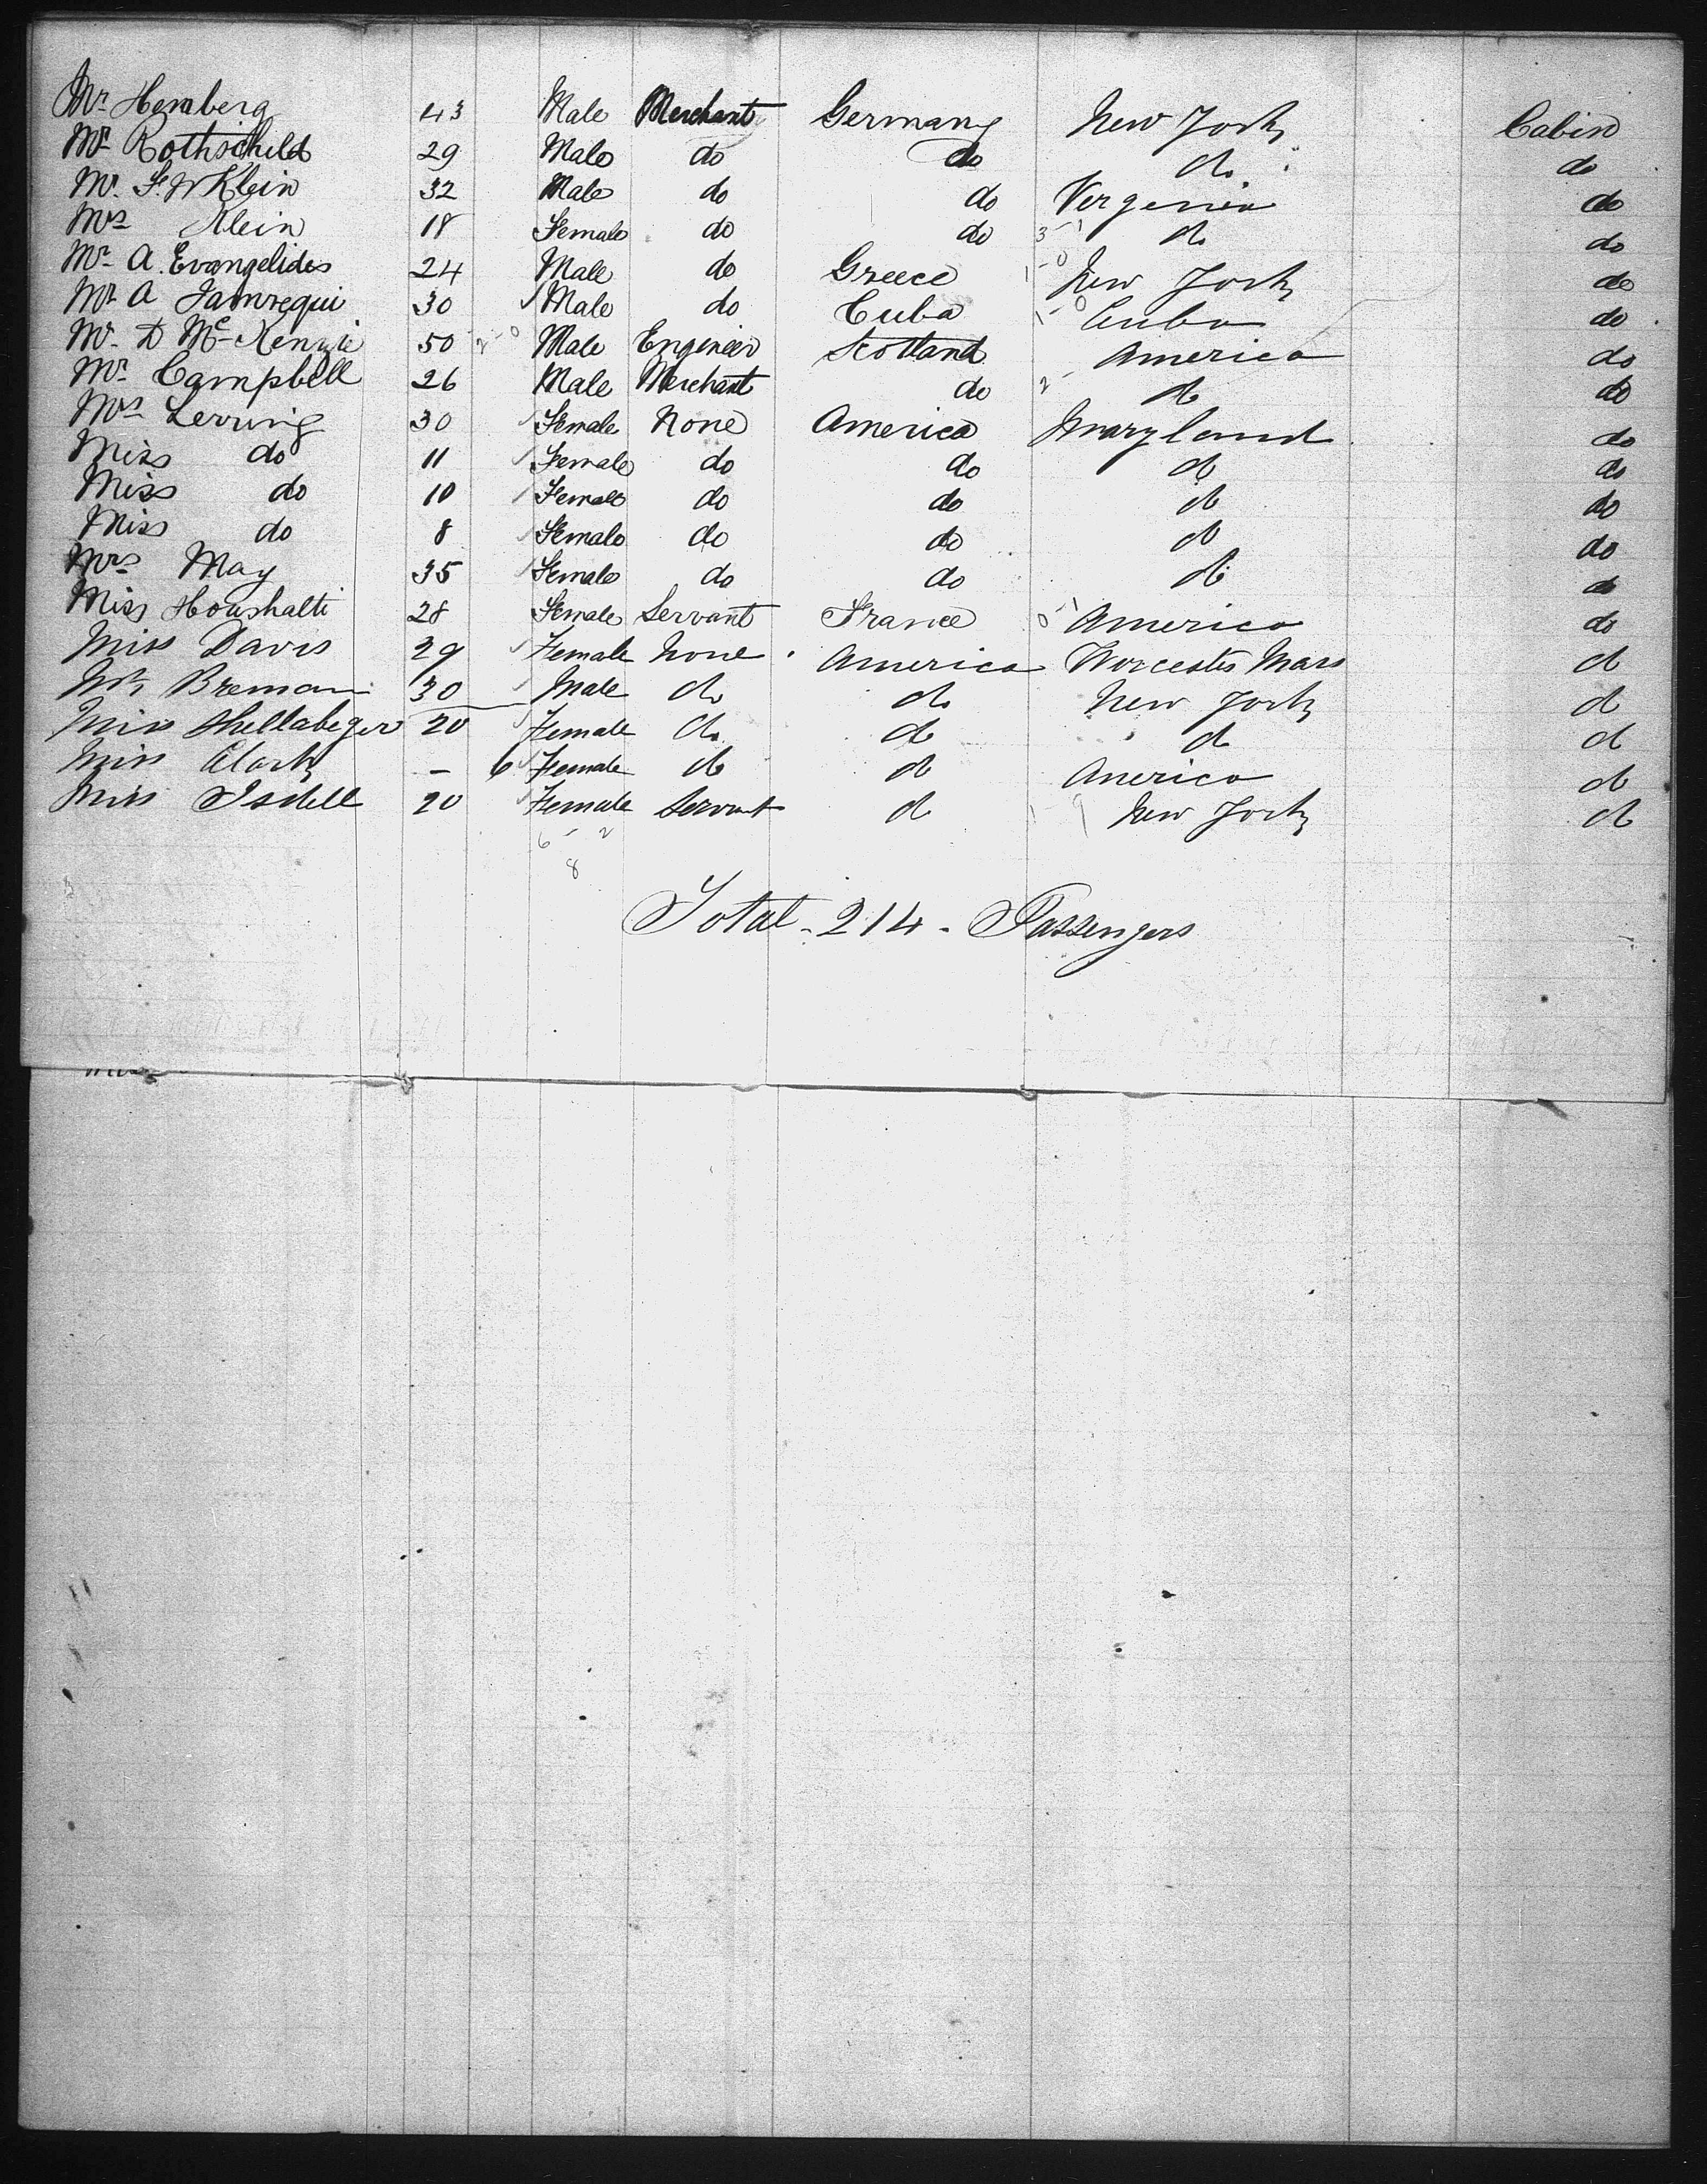 Mr Hemberg 43 Male Merchant Germany New York Cabin
Mr Rothschild 29 Male do do do do
Mr F. W Klein 32 Male do do Vergenia do
Mrs Klein 18 Female do do 3-1 do do
Mr A. Evangelides 24 Male do Greece 1-0 New York do
Mr A 30 Male do Cuba 1-0 Cuba do
Mr D McKenzie 50 2-0 Male Engineer Scotland America do
Mr Campbell 26 Male Merchant do 2- do do
Mrs 30 Female None America Maryland do
Miss do 11 Female do do do do
Miss do 10 Female do do do do
Miss do 8 Female do do do do
Mrs May 35 Female do do do do
Miss 28 Female Servant France 0-1 America do
Miss Davis 29 Female None America Worcester Mass do
Mr Breman 30 Male do do New York do
Miss Shellabeger 20 Female do do do do
Miss Clark – 6 Female do do America do
Miss Isdell 20 Female Servant do New York do
6 - 2
8
Total - 214 - Passengers